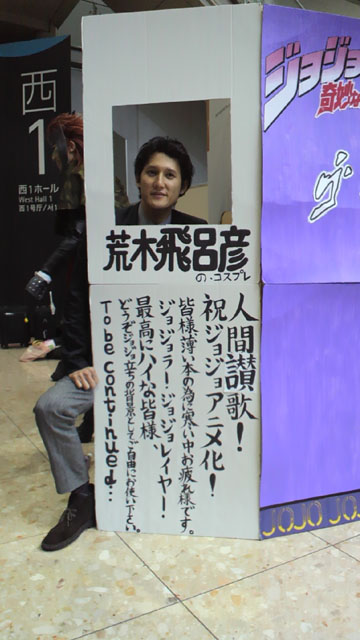 西
1
西1ホール
West Hall 1
西1号厅/서1
ジョジョ
奇妙な
荒木飛呂彦
の、コスプレ
人間讃歌！
祝ジョジョアニメ化！
皆様、薄い本の為に寒い中お疲れ様です。
ジョジョラー・ジョジョレイヤー！
最高にハイな皆様、
どうぞジョジョ立ちの背景としてご自由にお使い下さい。
To be continued...
JOJO JOJO